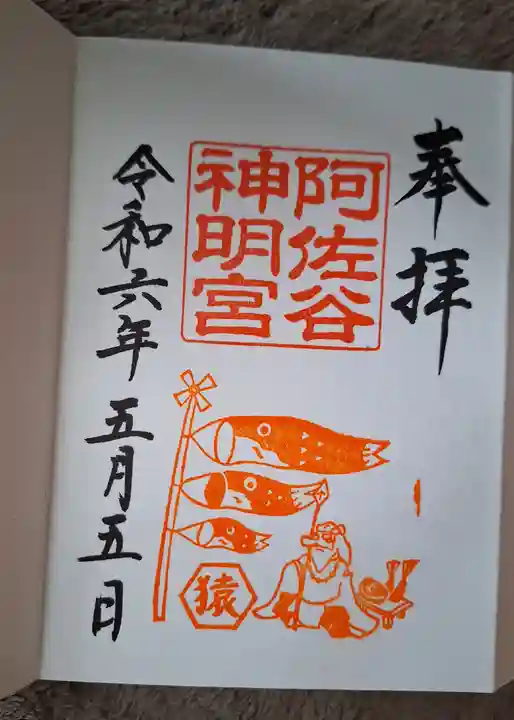 奉拝
阿佐谷
神明宮
猿
令和六年 五月五日